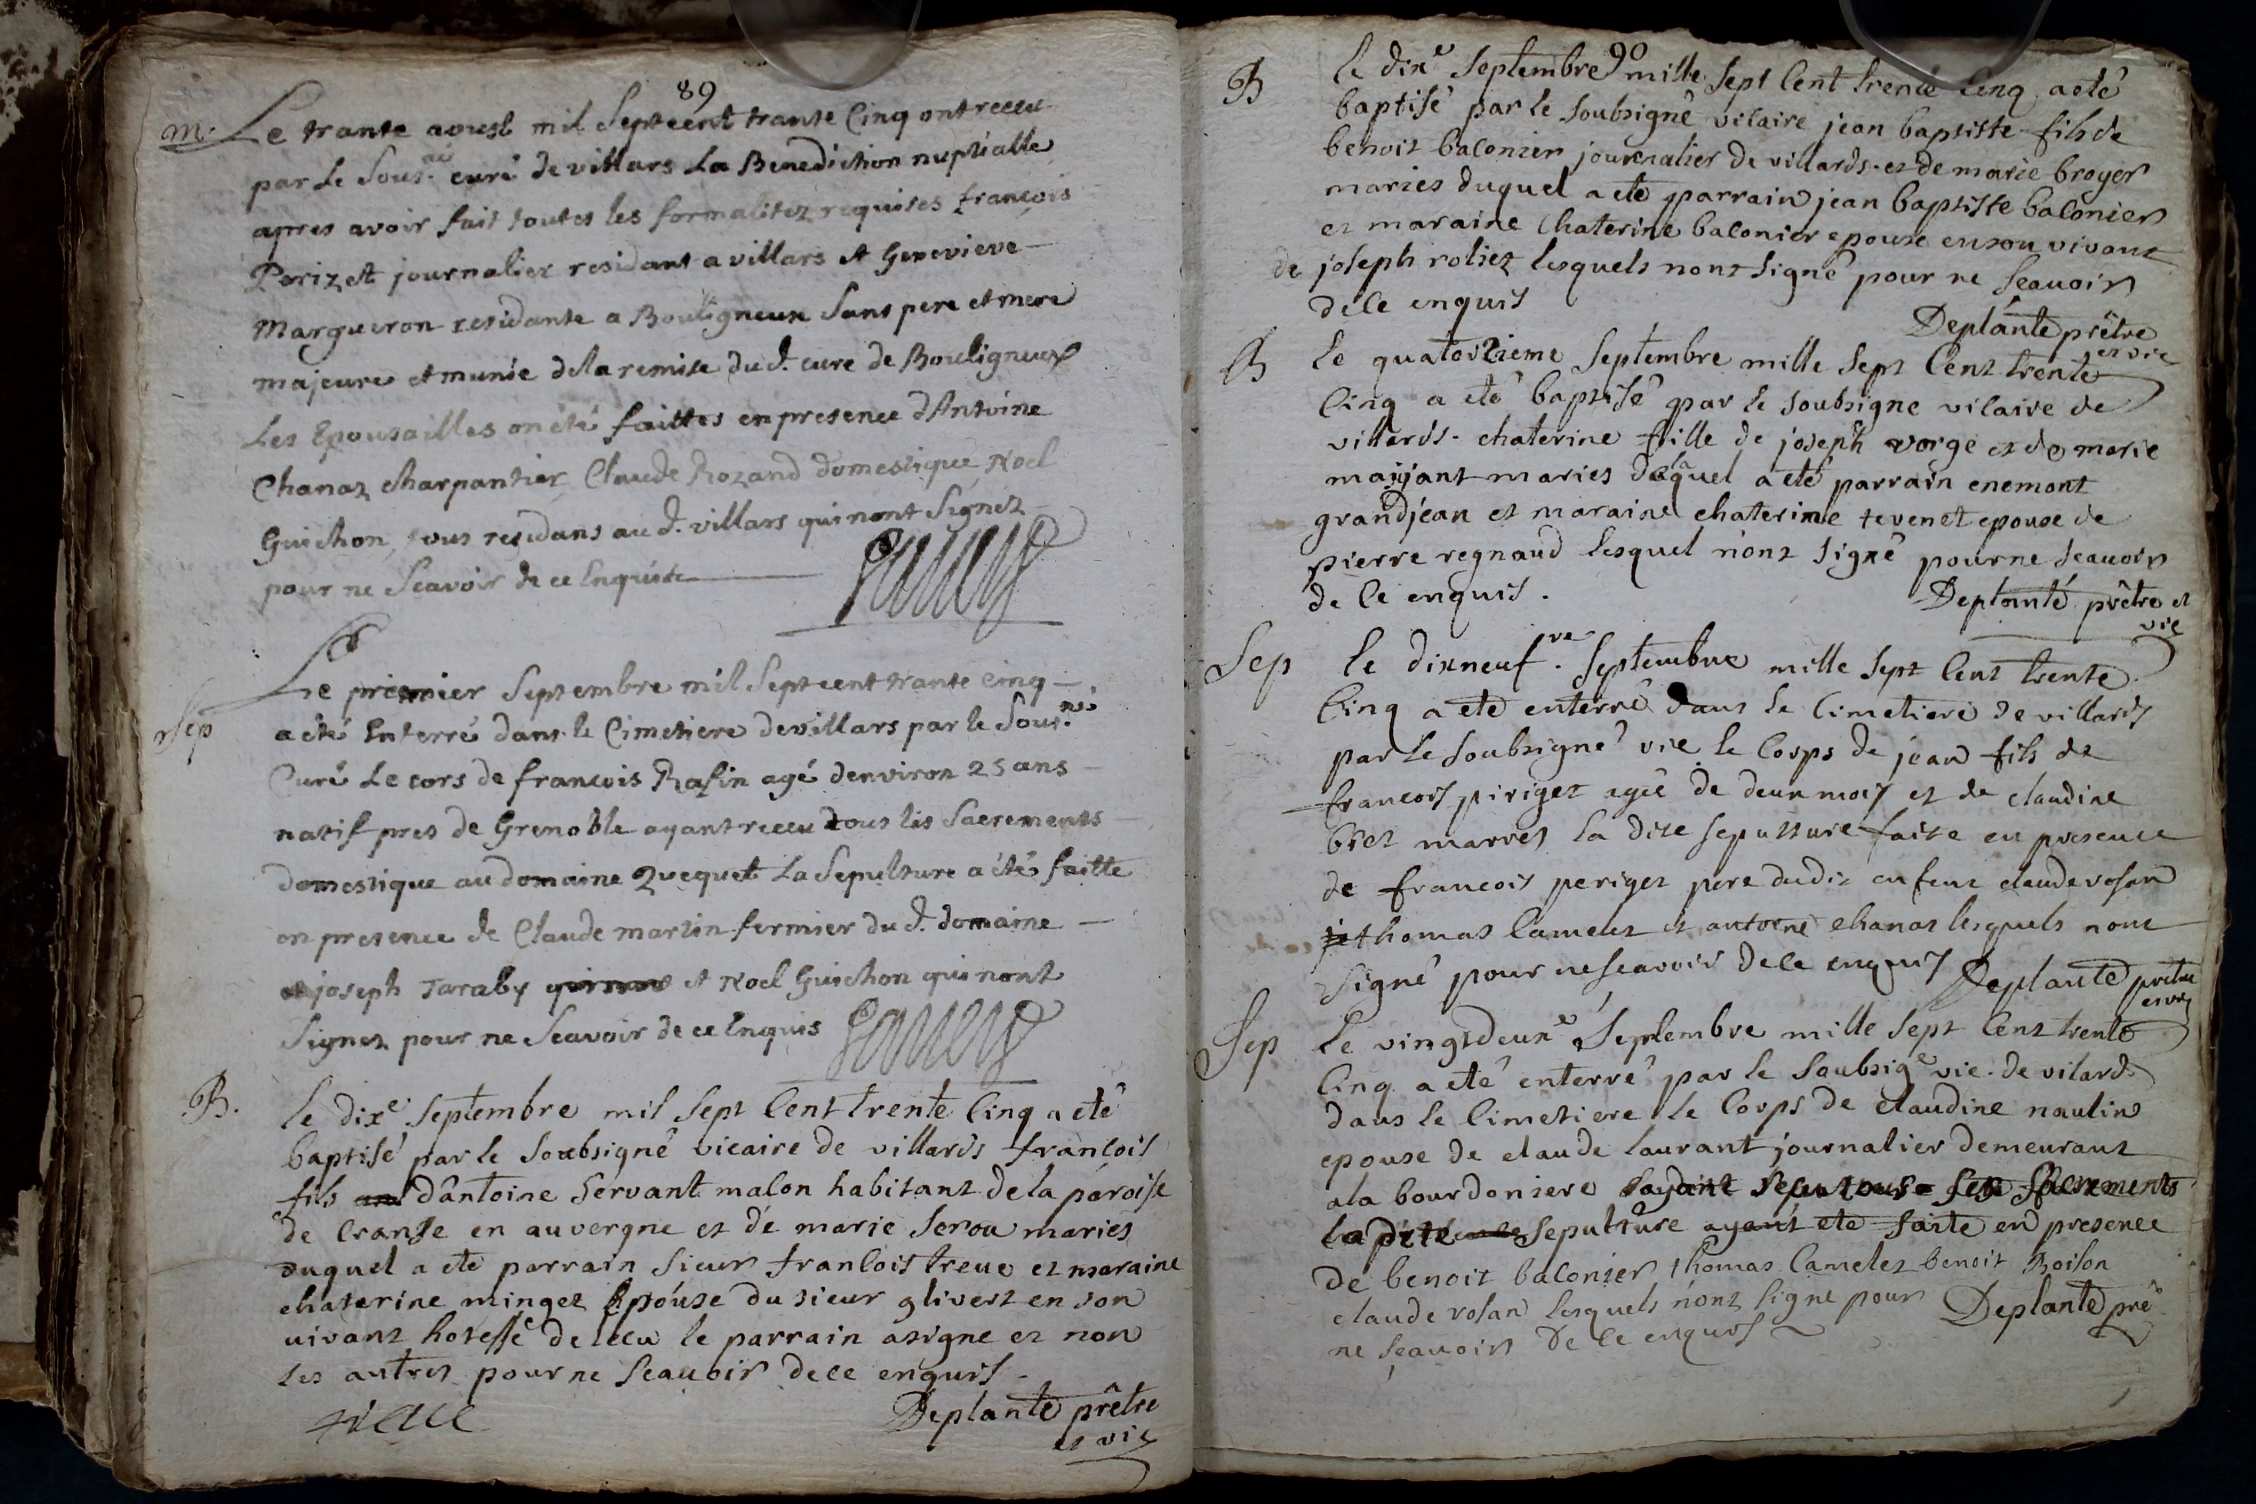 89
m. Le trante aoust mil Septcent trante Cinq ont receu
par Le Sous.né curé de villars La Benediction nuptialle
apres avoir fait toutes les formalitez requises françois
Perizet journalier residant a villars et Genevieve
Margueron residante a Bouligneux Sans pere et mere
majeure et munie de la remise du d. cure de Bouligneux
Les Epousailles on été faittes en presence d'Antoine
Chanaz charpantier Claude Rozand domestique Noel
Guichon tous residans au d. villars qui nont Signez
pour ne Scavoir de ce Enquis
Sep Le premier Septembre mil Septcent trante cinq
a été Enterré dans le Cimetiere de villars par le Sous.né
Curé Le cors de francois Rafin agé denviron 25 ans
natif pres de Grenoble ayant receu tous les Sacrements
domestique au domaine Quequet La Sepulture a été faitte
en presence de Claude martin fermier du d. domaine
joseph Taraby et Noel Guichon qui nont
Signez pour ne Scavoir de ce Enquis
B. le dixe Septembre mil Sept Cent trente Cinq a eté
baptisé par le Soubsigné vicaire de villards francois
fils d'antoine Servant malon habitant de la paroise
de en auvergne et de marie Serou maries
duquel a ete parrain Sieur francois treue et maraine
chaterine minget Epouse du sieur glivest en son
vivant hotesse de lecu le parrain a signe et non
les autres pour ne Scauoir de ce enquis
treue
Deplante prêtre
et vic
90
B le dixe Septembre mille Sept Cent trente Cinq a eté
baptisé par le Soubsigné vicaire jean baptiste fils de
benoit baconier journalier de villards et de marie broyer
maries duquel a ete parrain jean baptiste baconier
et maraine Chaterine baconier epouse en son vivant
de joseph roliet lesquels nont signé pour ne Scauoir
de ce enquis
Deplante prêtre
et vic
B le quatorzieme Septembre mille Sept Cent trente
Cinq a eté baptisé par le Soubsigne vicaire de
villards chaterine fille de joseph vorge et de marie
majant maries de laquel a eté parrain enemont
grandjean et maraine chaterine tevenet epouse de
pierre regnaud lesquel n'ont signé pour ne Scauoir
de Ce enquis.
Deplante prêtre et
vic
Sep le dixneuf. Septembre mille Sept Cent trente
Cinq a ete enterré dans le Cimetiere de villards
par le Soubsigné vic le Corps de jean fils de
francois piriget agé de deux mois et de claudine
maries la dite sepulture faite en presence
de francois periget pere dudit enfent claude rosan
thomas Camelet et antoene chanas lesquels nont
signé pour ne scavoir de ce enquis
Deplante prêtre
et vic
Sep le vingtdeuxe Septembre mille Sept Cent trente
Cinq a eté enterré par le Soubsige vic. de vilard
dans le Cimetiere le Corps de claudine naulin
epouse de claude laurant journalier demeurant
a la bourdoniere ayant reçu tous Ses Sacrements
la dite sepulture ayant ete faite en presence
de benoit baconier thomas Camelet benoit Boison
claude rosan lesquels n'ont signe pour
ne Scauoir de Ce enquis
Deplante prê